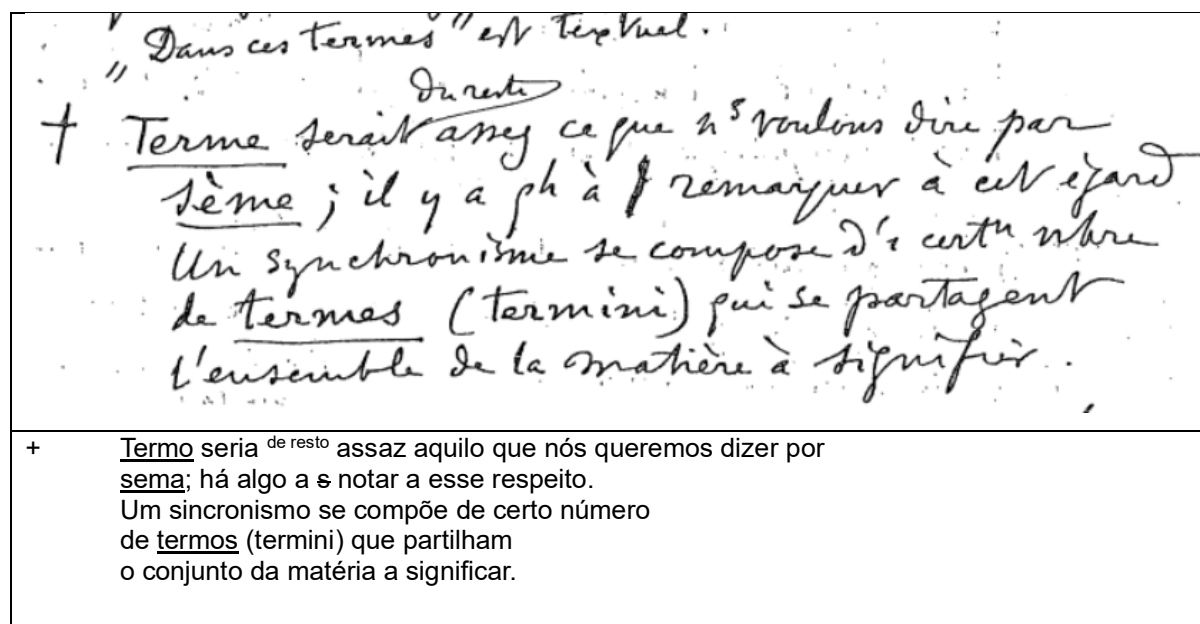 „ Dans ces termes " est textuel.
du reste
+ Terme serait assez ce que ns voulons dire par
sème ; il y a qch à remarquer à cet égard
Un synchronisme se compose d'1 certn nbre
de termes (termini) qui se partagent
l'ensemble de la matière à signifier.
+ Termo seria de resto assaz aquilo que nós queremos dizer por
sema; há algo a s notar a esse respeito.
Um sincronismo se compõe de certo número
de termos (termini) que partilham
o conjunto da matéria a significar.